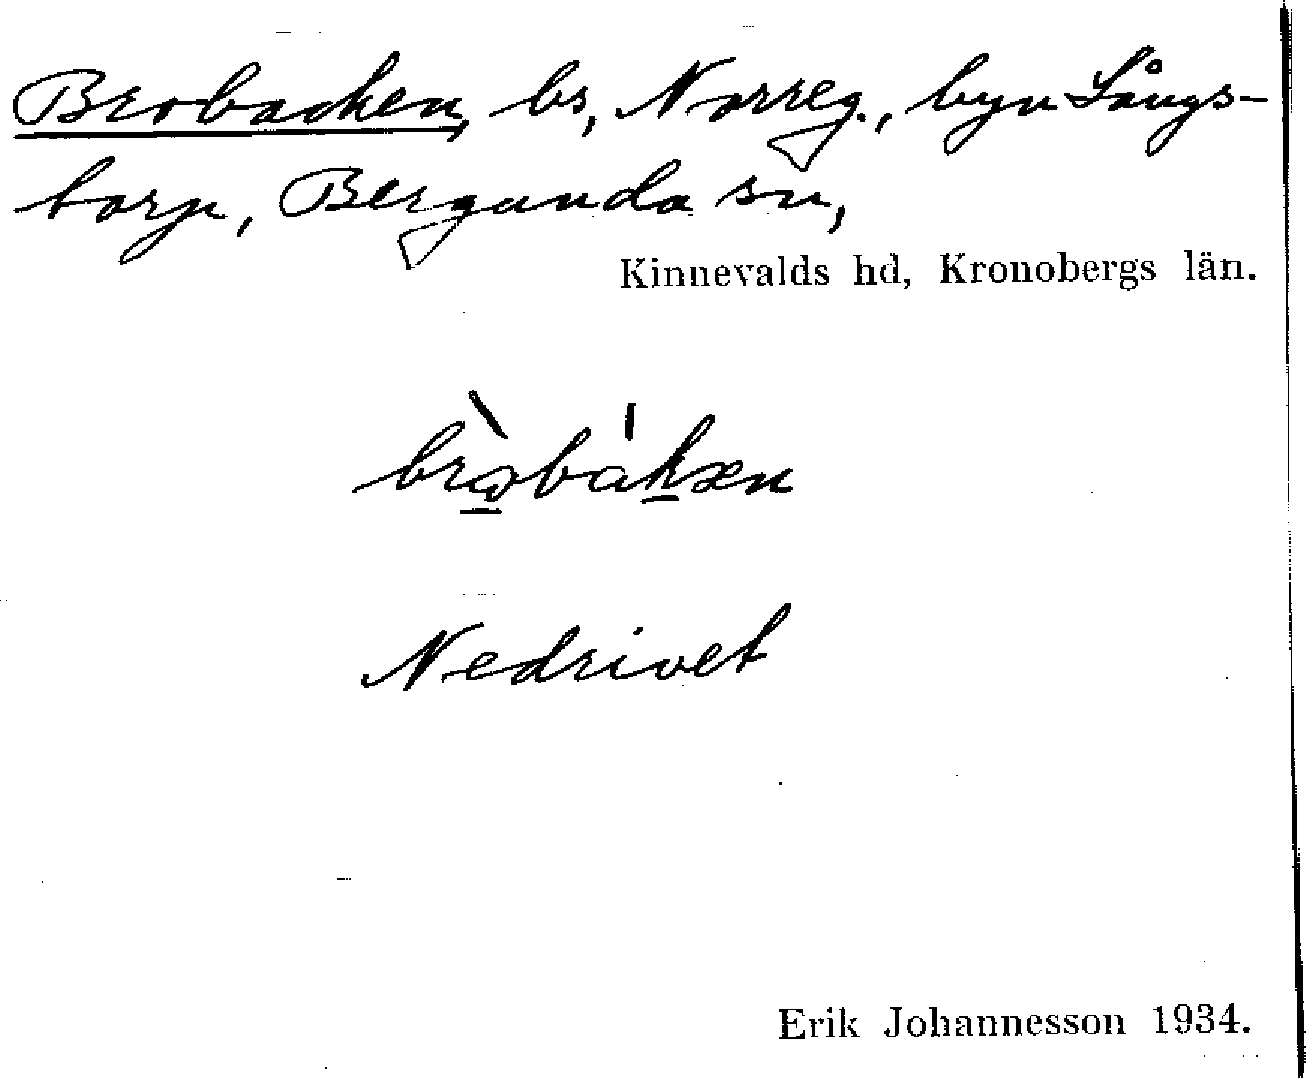 Brobacken, bs, Norreg., byn Långs-
torp, Bergunda sn,
Kinnevalds hd, Kronobergs län.
bròbákæn
Nedrivet
Erik Johannesson 1934.